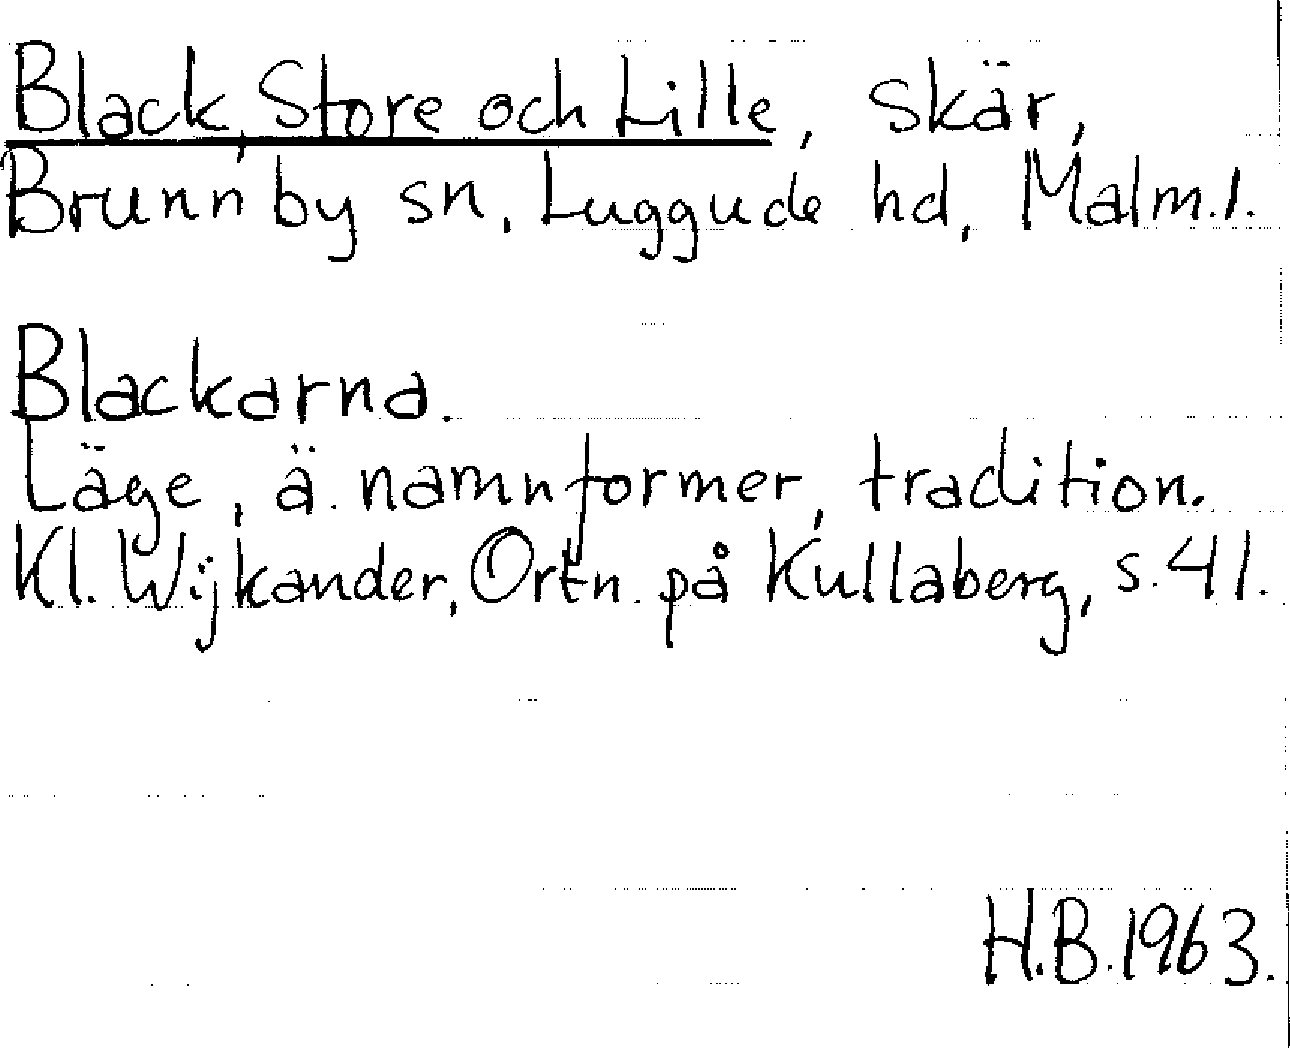 Black, Store och Lille, skär,
Brunnby sn, Luggude hd, Malm.l.
Blackarna.
Läge, ä. namnformer, tradition.
Kl. Wijkander, Ortn. på Kullaberg, s. 41.
H.B. 1963.